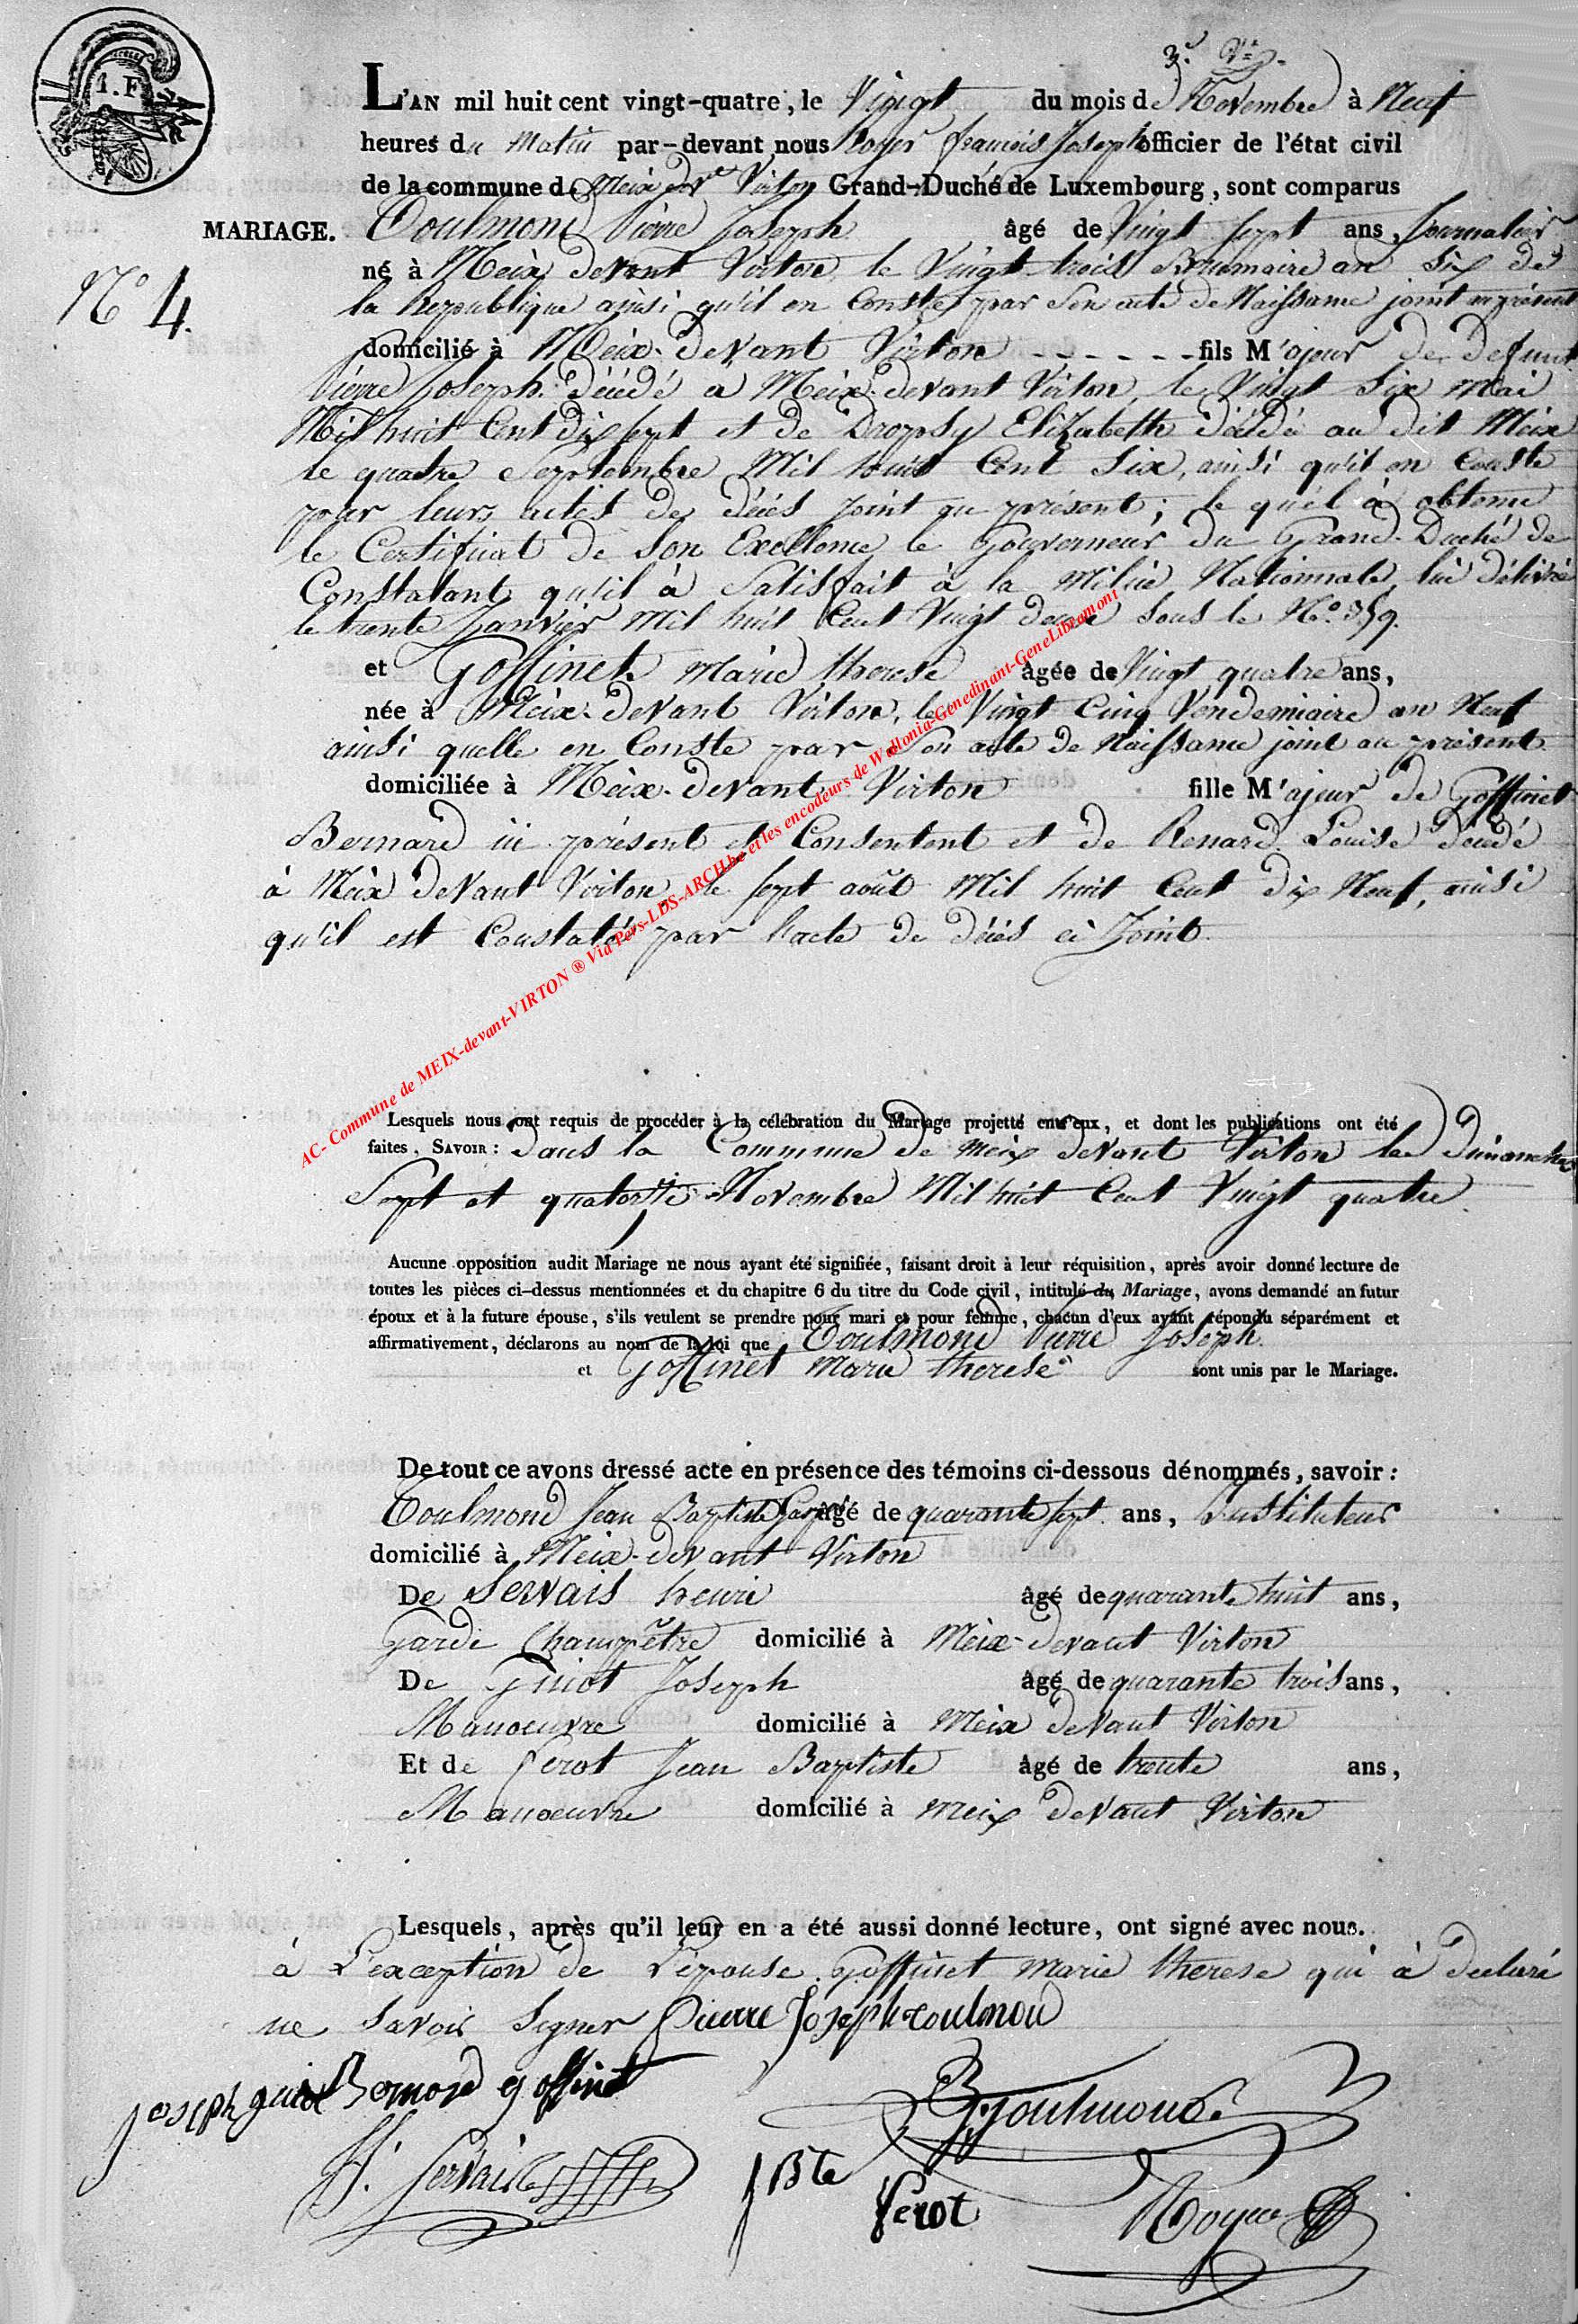 1. F.
3.e
L'AN mil huit cent vingt-quatre, le Vingt du mois de Novembre à Neuf
heures du Matin par-devant nous Royer francois Joseph officier de l'état civil
de la commune de Meix dvt Virton Grand-Duché de Luxembourg, sont comparus
MARIAGE. Toulmond Pierre Joseph âgé de Vingt sept ans, Journalier
né à Meix devant Virton, le Vingt trois Brumaire an Six de
N° 4.
la Republique ainsi qu'il en Conste par Son acte de Naissance joint au présent
domicilié à Meix-devant Virton - - - - - - fils M'ajeur de defunt
Pierre Joseph décédé à Meix-devant Virton, le Vingt Six Mai
Mil huit Cent dix sept et de Dropsy Elizabeth décédé au dit Meix
le quatre Septembre Mil huit Cent Six, ainsi qu'il en Conste
par leurs actes de décés joint au présent; le quel à obtenu
le Certificat de Son Exellence le Gouverneur du Grand-Duché de
Constatant qu'il à Satisfait à la Milice Nationnale, lui délivré
le trente Janvier Mil huit Cent Vingt deux sous le N.° 359.
et Goffinet Marie therese âgée de Vingt quatre ans,
née à Meix-devant Virton, le Vingt Cinq Vendemiaire an Neuf
ainsi quelle en Conste par Son acte de Naissance joint au présent
domiciliée à Meix-devant Virton fille M'ajeur de Goffinet
Bernard ici présent et Consentent et de Renard Louise Décédé
à Meix devant Virton, le Sept août Mil huit Cent dix Neuf, ainsi
qu'il est Constaté par l'acte de décés ci Joint
AC- Commune de MEIX-devant-VIRTON ® Via Pers-LDS-ARCH.be et les encodeurs de Wallonia-Genedinant-GeneLibramont
Lesquels nous ont requis de procéder à la célébration du Mariage projetté entr'eux, et dont les publications ont été
faites, SAVOIR : dans la Commune de Meix devant Virton les Dimanches
Sept et quatorze Novembre Mil huit Cent Vingt quatre
Aucune opposition audit Mariage ne nous ayant été signifiée, faisant droit à leur réquisition, après avoir donné lecture de
toutes les pièces ci-dessus mentionnées et du chapitre 6 du titre du Code civil, intitulé du Mariage, avons demandé au futur
époux et à la future épouse, s'ils veulent se prendre pour mari et pour femme, chacun d'eux ayant répondu séparément et
affirmativement, déclarons au nom de la loi que Toulmond Pierre Joseph
et Goffinet Marie therese sont unis par le Mariage.
De tout ce avons dressé acte en présence des témoins ci-dessous dénommés, savoir :
Toulmond Jean Baptiste âgé de quarante sept ans, Instituteur
domicilié à Meix-devant Virton
De Servais henri âgé de quarante huit ans,
Garde Champêtre domicilié à Meix-devant Virton
De Guiot Joseph âgé de quarante trois ans,
Manoeuvre domicilié à Meix devant Virton
Et de Perot Jean Baptiste âgé de trente ans,
Manoeuvre domicilié à Meix devant Virton
Lesquels, après qu'il leur en a été aussi donné lecture, ont signé avec nous.
à L'exception de L'épouse Goffinet Marie therese qui à declaré
ne Savoir Signer Pierre Joseph toulmon
Joseph guiot Bernard goffinet
H. Servais
JBte
Perot
Royer